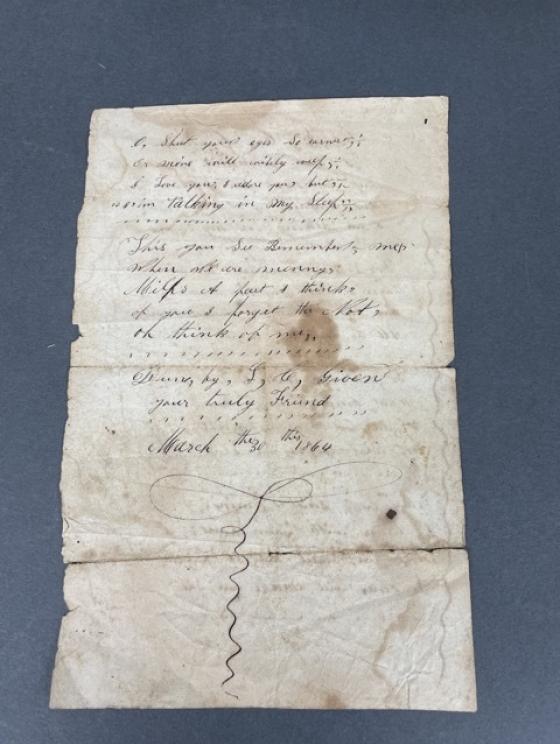 O, Shut your eyes So
Or more will witely weep,
I Love you, I adore you, but,
or im Talking in my Sleep
This you See Remember, me,
When we are
Miles A part I think,
of you I forget the Not,
oh think of me,
Dun, by, J, C, Given
your truly Friend
March the 30 this 1864